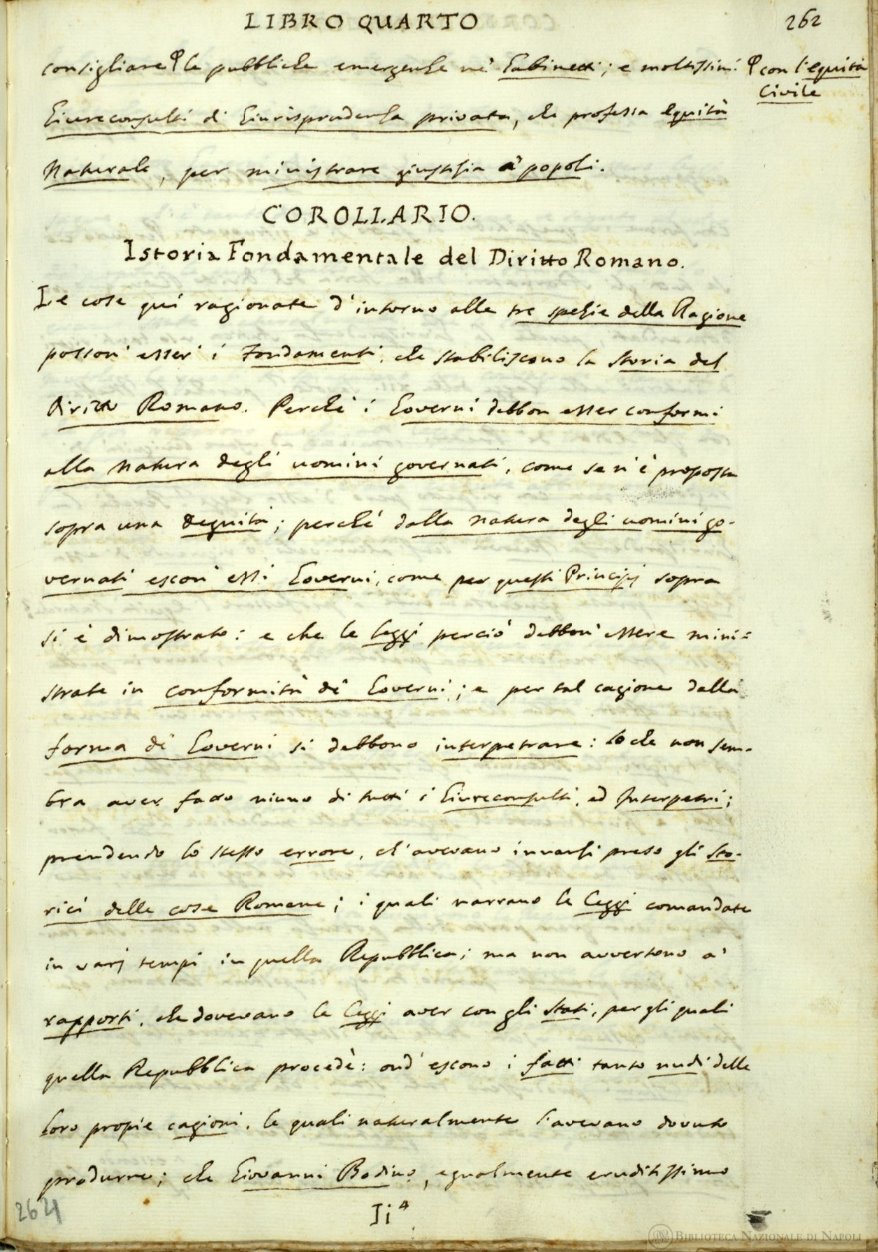 LIBRO QUARTO
262
consigliare ꟼ le pubbliche emergenze ne' Gabinetti; e moltissimi
ꟼ con l'equità
Civile
Giureconsulti di Giurisprudenza privata, che professa Equità
Naturale, per ministrare giustizia a' popoli.
COROLLARIO.
Istoria Fondamentale del Diritto Romano.
Le cose qui ragionate d'intorno alle tre spezie della Ragione
posson' esser' i Fondamenti, che stabiliscono la Storia del
Diritto Romano. Perchè i Governi debbon esser conformi
alla natura degli uomini governati, come se n'è proposta
sopra una degnità; perchè dalla natura degli uomini go-
vernati escon' essi Governi, come per questi Principj sopra
si è dimostrato: e che le leggi perciò debbon' essere mini=
strate in conformità de' Governi; e per tal cagione dalla
forma de' Governi si debbono interpetrare: lo che non sem-
bra aver fatto niuno di tutti i Giureconsulti, ed Interpetri;
prendendo lo stesso errore, ch'avevano innanzi preso gli Sto-
rici delle cose Romane; i quali narrano le Leggi comandate
in varj tempi in quella Repubblica; ma non avvertono a'
rapporti, che dovevano le Leggi aver con gli stati, per gli quali
quella Repubblica procedè: ond' escono i fatti tanto nudi delle
loro propie cagioni, le quali naturalmente l'avevano dovuto
produrre; che Giovanni Bodino, egualmente eruditissimo
Ii 4
264
BIBLIOTECA NAZIONALE DI NAPOLI